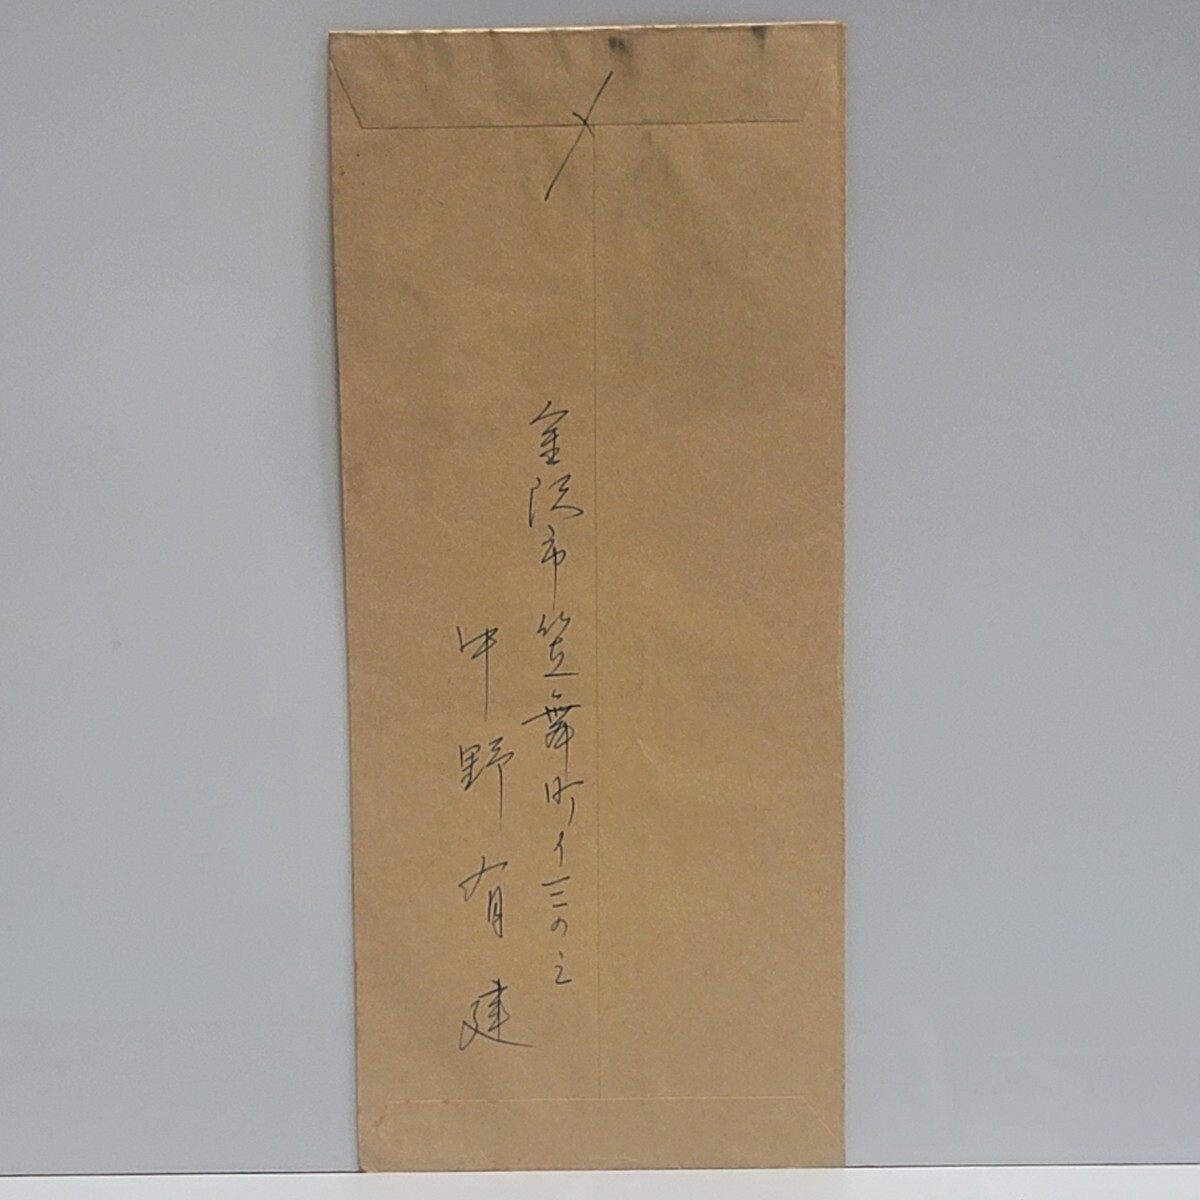 〆
金沢市笠舞町イ一三の二
中野有建